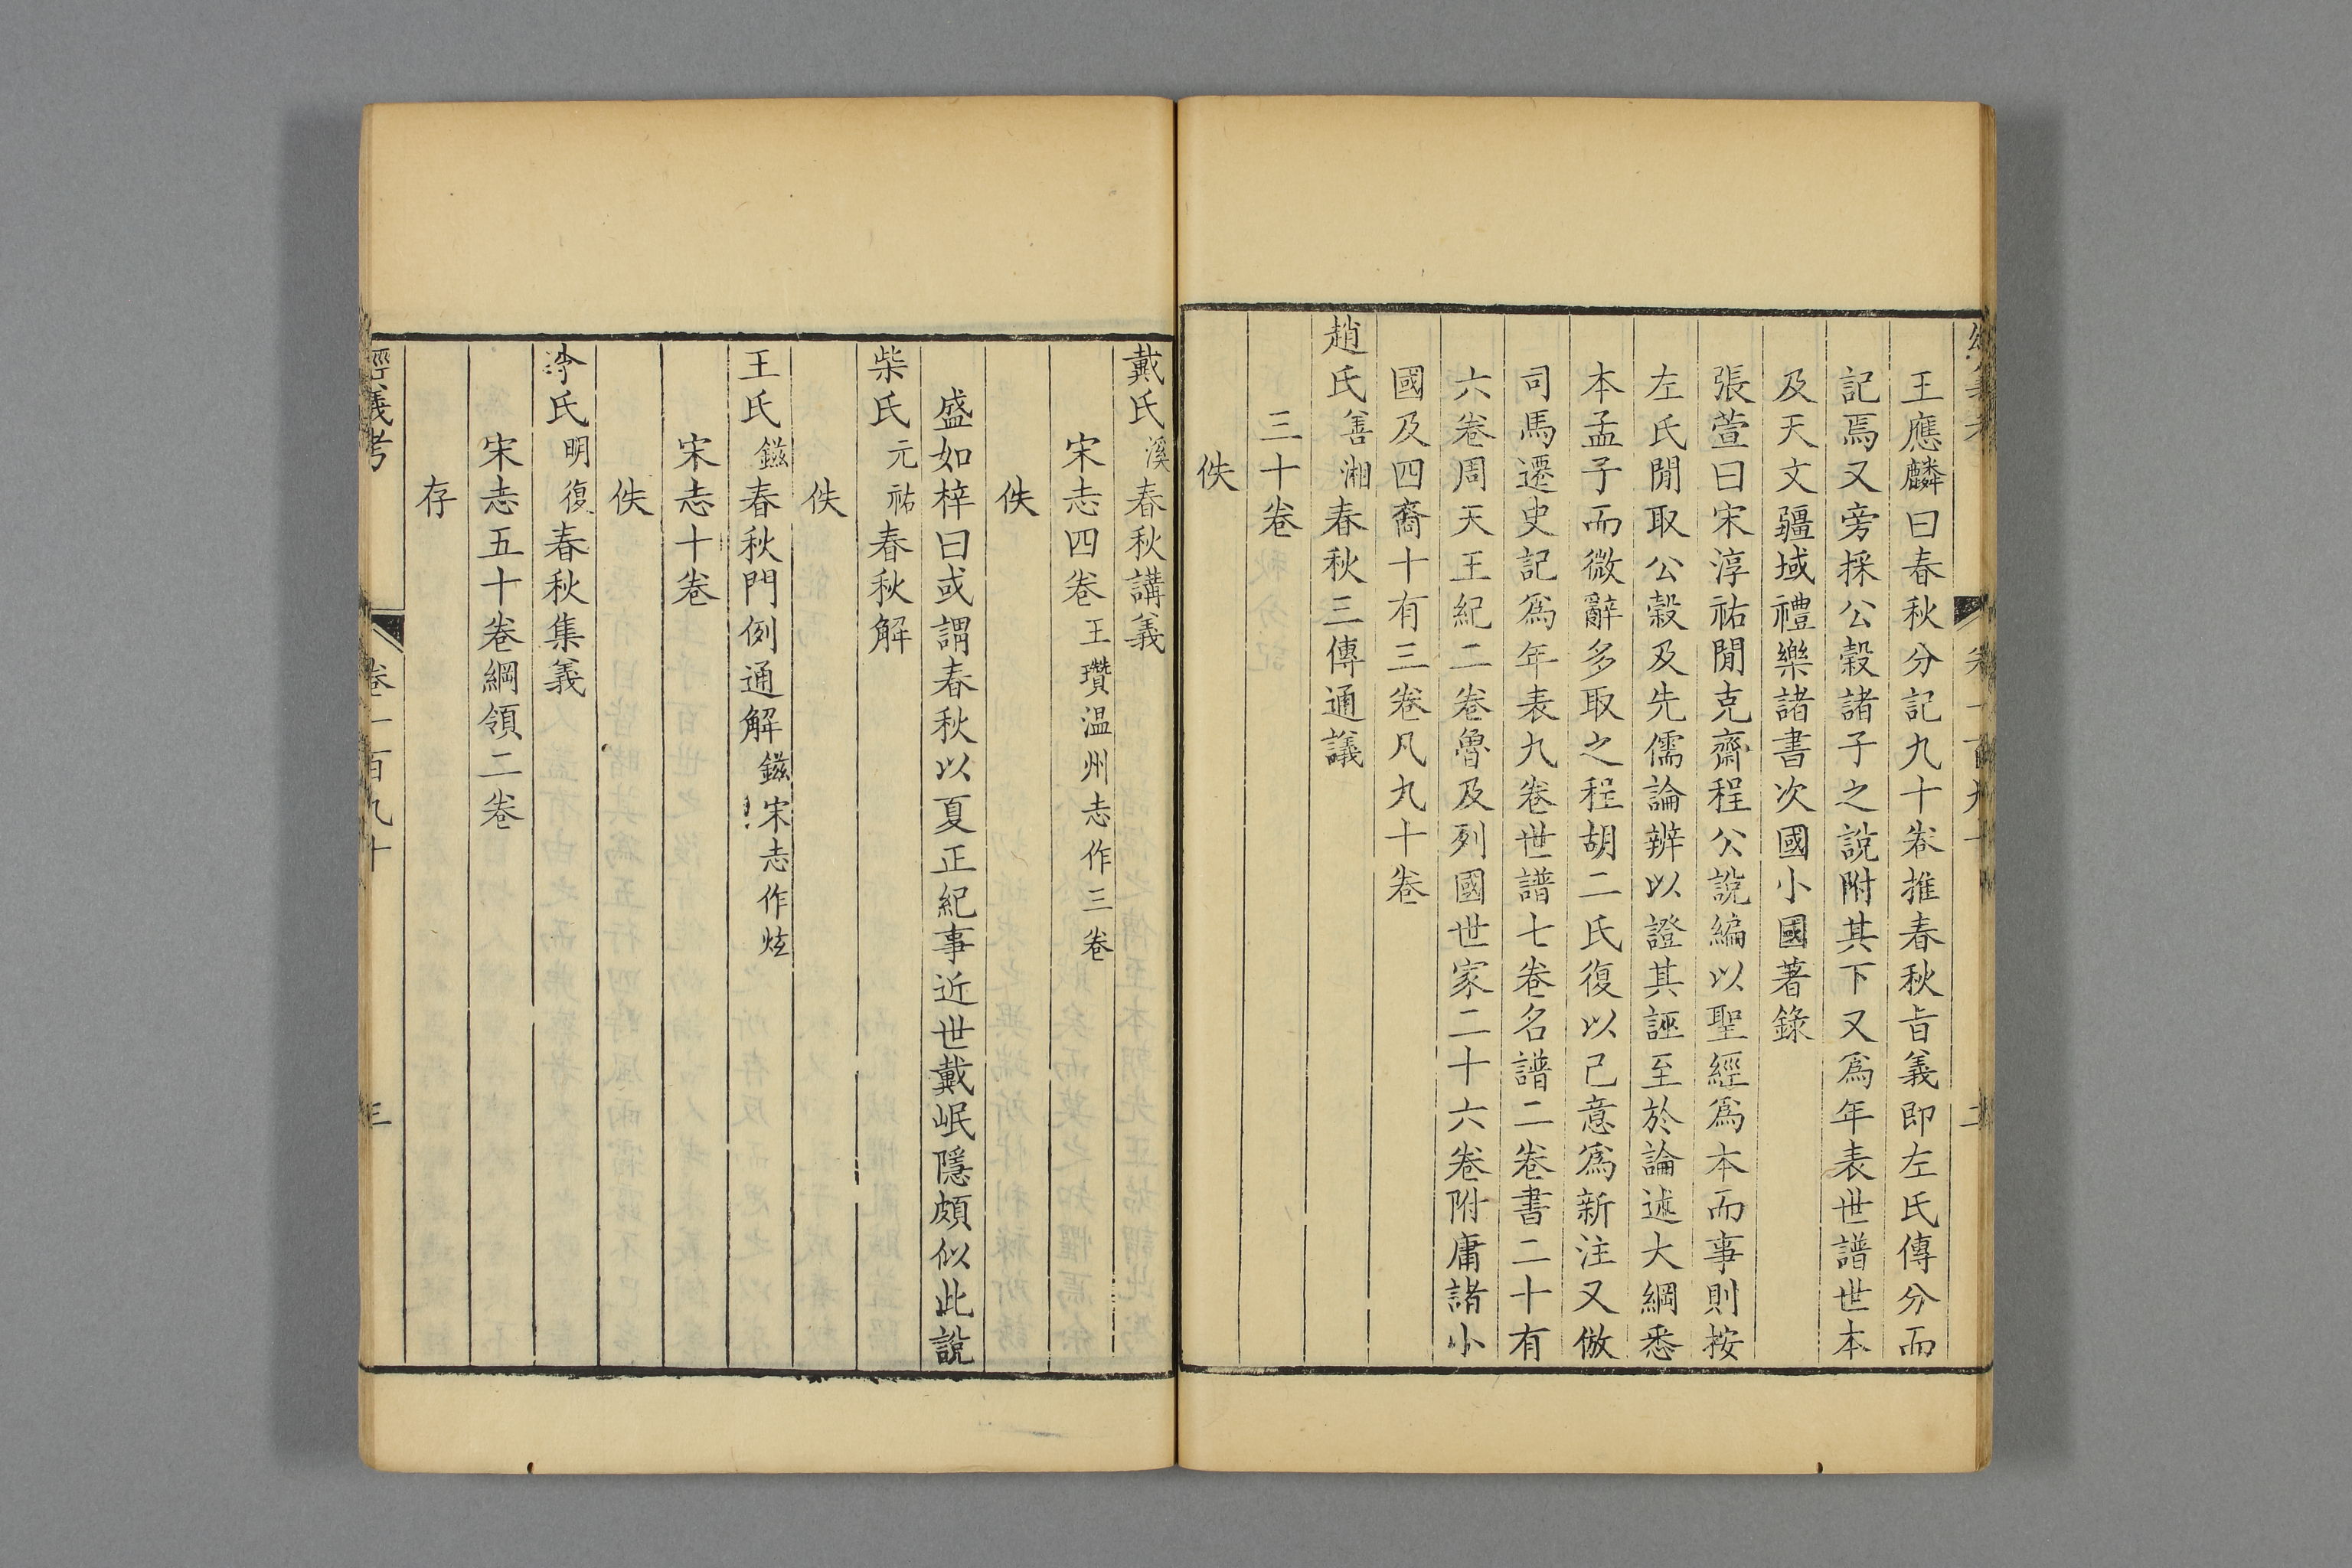 王應麟曰春秋分記九十卷推春秋旨義即左氏傳分而
記焉又旁採公榖諸子之說附其下又爲年表世譜世本
及天文疆域禮樂諸書次國小國著錄
張萱曰宋淳祐閒克齋程公說編以聖經爲本而事則按
左氏閒取公榖及先儒論辨以證其誣至於論述大綱悉
本孟子而微辭多取之程胡二氏復以己意爲新注又倣
司馬遷史記爲年表九卷世譜七卷名譜二卷書二十有
六卷周天王紀二卷魯及列國世家二十六卷附庸諸小
國及四裔十有三卷凡九十卷
趙氏善湘春秋三傳通議
三十卷
佚
戴氏溪春秋講義
宋志四卷王瓚温州志作三卷
佚
盛如梓曰或謂春秋以夏正紀事近世戴岷隱頗似此說
柴氏元祐春秋解
佚
王氏鎡春秋門例通解鎡宋志作炫
宋志十卷
佚
氏明復春秋集義
宋志五十卷綱領二卷
存
經義考 卷一百九十 三